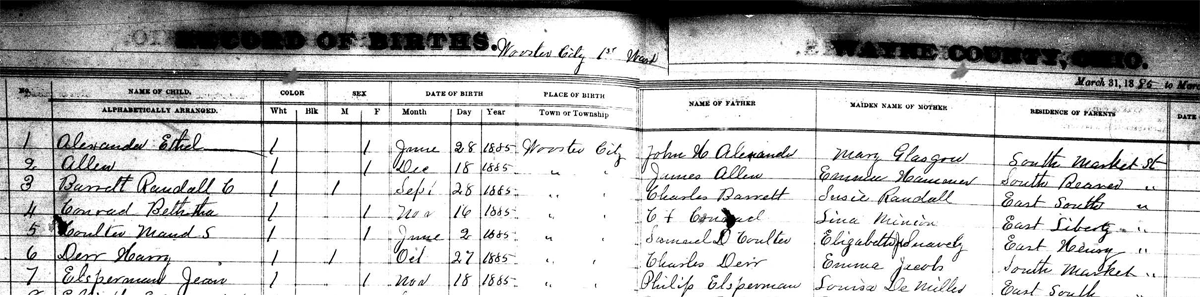 RECORD OF BIRTHS. Wooster City 1st Ward WAYNE COUNTY, OHIO.
March 31, 1885 to Mar
No. NAME OF CHILD. COLOR SEX DATE OF BIRTH PLACE OF BIRTH NAME OF FATHER MAIDEN NAME OF MOTHER RESIDENCE OF PARENTS DATE
ALPHABETICALLY ARRANGED. Wht Blk M F Month Day Year Town or Township
1 Alexander Ethel 1 1 June 28 1885 Wooster City John H Alexander Mary Glasgow South Market St
2 Allen 1 1 Dec 18 1885 " " James Allen Emma Hammer South Beaver "
3 Barrett Randall C 1 1 Sept 28 1885 " " Charles Barrett Susie Randall East South "
4 Conrad Bethetha 1 1 Nov 16 1885 " " C F Conrad Lina Minion East Liberty "
5 Coulter Maud S 1 1 June 2 1885 " " Samuel D Coulter Elizabeth Snavely East Henry "
6 Derr Harry 1 1 Oct 27 1885 " " Charles Derr Emma Jacobs South Market "
7 Elsperman Jean 1 1 Nov 18 1885 " " Philip Elsperman Louisa De Milles East South "